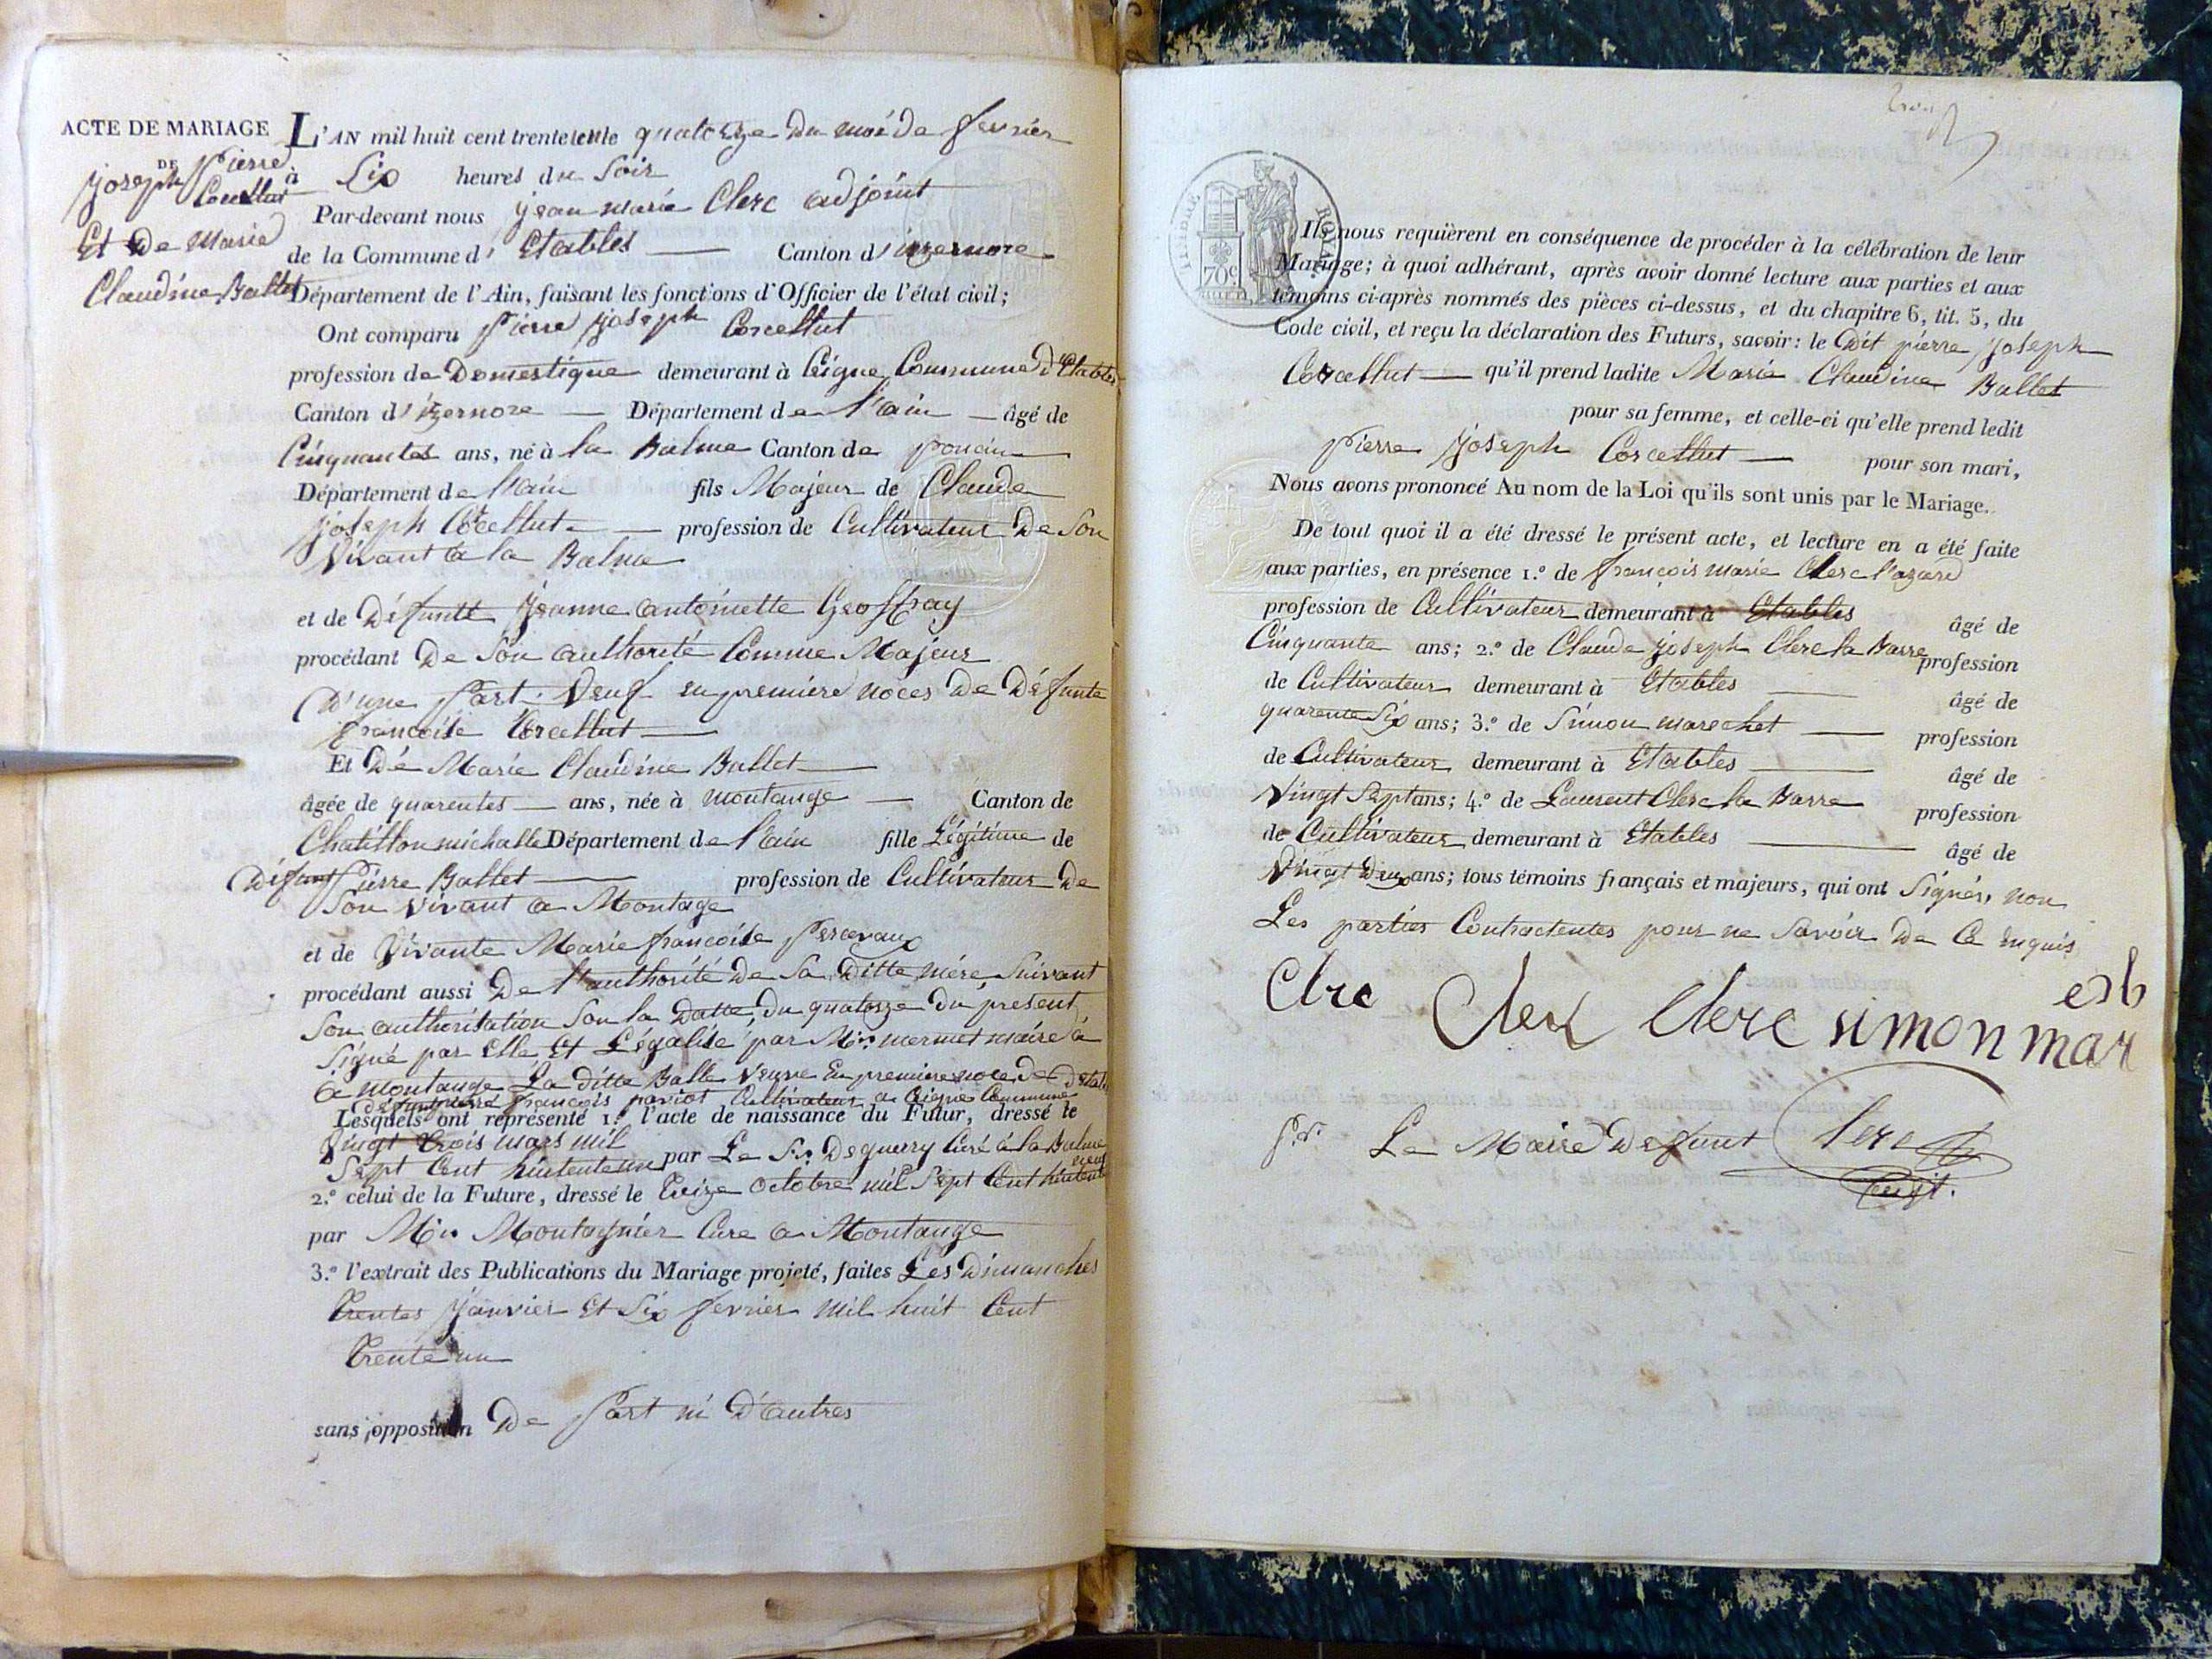 ACTE DE MARIAGE
DE Pierre
joseph Corcellut
Et De Marie
Claudine Ballet
L'AN mil huit cent trente quatorze du moi de fevrier
à Six heures du Soir
Par-devant nous jean marie Clerc adjoint
de la Commune d' Etables Canton d'izernore
Département de l'Ain, faisant les fonctions d'Officier de l'état civil;
Ont comparu Pierre joseph Corcellut
profession de Domestique demeurant à Ceigne Commune d'Etables
Canton d'izernore Département de l'ain âgé de
Cinquantes ans, né à la Balme Canton de poncin
Département de l'ain fils Majeur de Claude
joseph Corcellut profession de Cultivateur De Son
Vivant a la Balme
et de Défunte jeanne antoinette Geoffray
procédant De Son authorité Comme Majeur
D'une Part. Veuf en premiere noces De Défunte
francoise Corcellut
Et Dé Marie Claudine Ballet
âgée de quarentes ans, née à Montange Canton de
Chatillon michalle Département de l'ain fille Légitime de
Défunt Pierre Ballet profession de Cultivateur De
Son Vivant a Montage
et de Vivante Marie francoise Percevaux
procédant aussi De l'authorité De Sa Ditte mére, Suivant
Son authorisation Sou la Datte du quatorze du present
Signé par Elle Et Légalisé par Mr. mermet maire a
a montange La ditte Balle veuve En premiere noce De
défunt francois paviot Cultivateur a Ceigne Commune d'etables
Lesquels ont représenté 1.º l'acte de naissance du Futur, dressé le
Vingt trois mars mil
Sept Cent huitente un par Le Sr. Deguerry Curé à la Balme
2.º celui de la Future, dressé le treize octobre mil Sept Cent huitente neuf
par Mr. Montagnier Cure a Montange
3.º l'extrait des Publications du Mariage projeté, faites Les Dimanches
trentes janvier Et Six fevrier mil huit Cent
trente un
sans opposition De Part ni D'autres
TIMBRE ROYAL
70c
Ils nous requièrent en conséquence de procéder à la célébration de leur
Mariage; à quoi adhérant, après avoir donné lecture aux parties et aux
témoins ci-après nommés des pièces ci-dessus, et du chapitre 6, tit. 5, du
Code civil, et reçu la déclaration des Futurs, savoir: le Dit pierre joseph
Corcellut qu'il prend ladite Marie Claudine Ballet
pour sa femme, et celle-ci qu'elle prend ledit
Pierre joseph Corcellut pour son mari,
Nous avons prononcé Au nom de la Loi qu'ils sont unis par le Mariage.
De tout quoi il a été dressé le présent acte, et lecture en a été faite
aux parties, en présence 1.º de françois marie Clerc l'azard
profession de Cultivateur demeurant à Etables âgé de
Cinquante ans; 2.º de Claude joseph Clerc la Barre profession
de Cultivateur demeurant à Etables âgé de
quarente Six ans; 3.º de Simon marechet profession
de Cultivateur demeurant à Etables âgé de
Vingt Sept ans; 4.º de Laurent Clerc la Barre profession
de Cultivateur demeurant à Etables âgé de
Vingt Deux ans; tous témoins français et majeurs, qui ont Signés, non
Les parties Contractentes pour ne Savoir De Ce enquis
Clrc Clerc Clerc simon mar
Pr. Le Maire Defunt Clerc